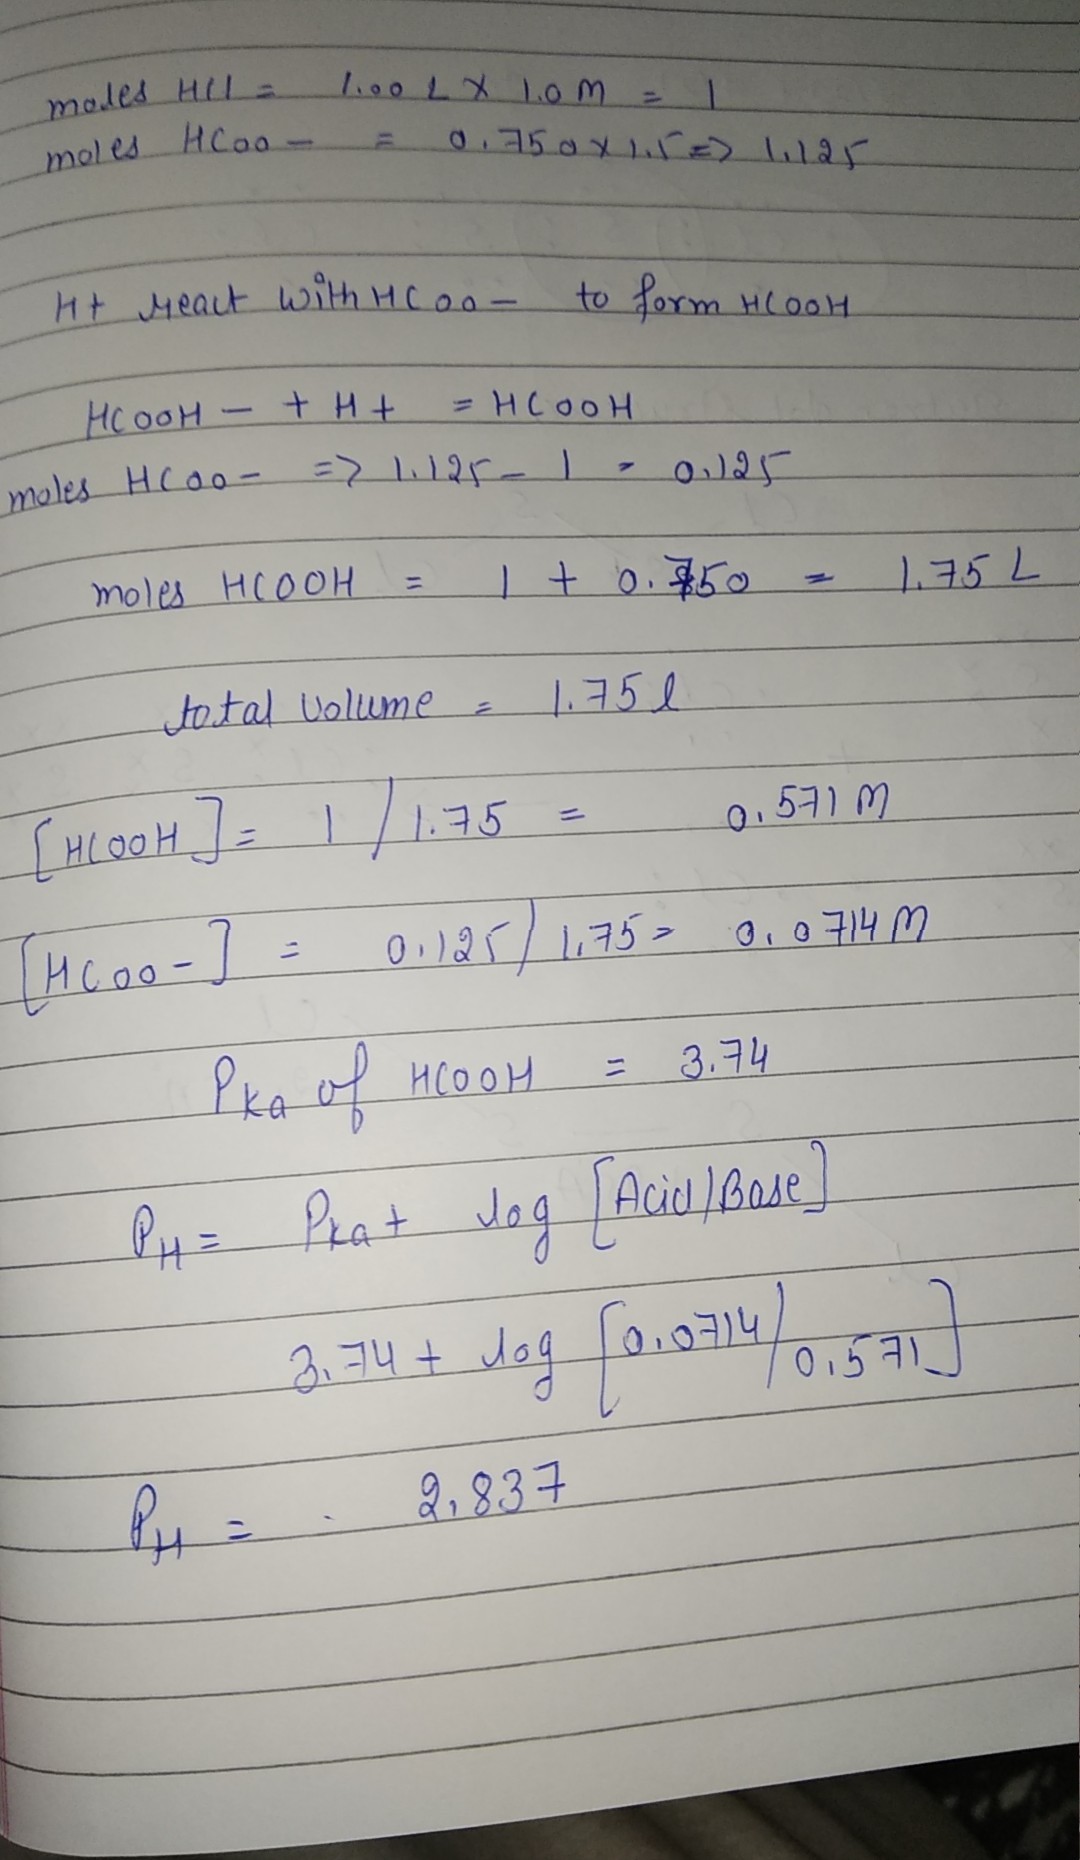 moles HCl = 1.00 L X 1.0 M = 1
moles HCoo - = 0.750 x 1.5 => 1.125
H+ react with HCoo - to form HCOOH
HCOOH - + H+ = HCOOH
moles HCoo - => 1.125 - 1 = 0.125
moles HCOOH = 1 + 0.750 = 1.75 L
total volume = 1.75 l
[HCOOH] = 1 / 1.75 = 0.571 M
[HCoo -] = 0.125 / 1.75 = 0.0714 M
Pka of HCOOH = 3.74
PH = Pka + log [Acid/Base]
3.74 + log [0.0714/0.571]
PH = 2.837